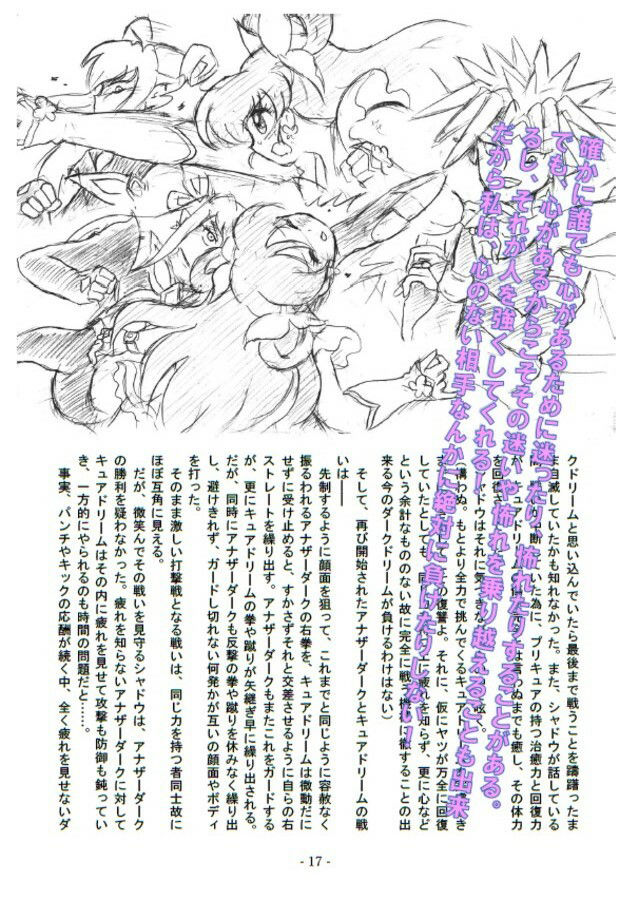 確かに誰でも心があるために迷ったり、怖れたりすることがある。
でも、心があるからこそその迷いや怖れを乗り越えることも出来
るし、それが人を強くしてくれる！
だから私は、心のない相手なんかに絶対に負けたりしない！
クドリームと思い込んでいたら最後まで戦うことを躊躇ったま
ま自滅していたかも知れなかった。また、シャドウが話している
いた為に、プリキュアの持つ治癒力と回復力
言わぬまでも癒し、その体力
を回復さ
シャドウはそれに気
構わぬ。もとより全力で挑んでくるキュアドリー
の復讐よ。それに、仮にヤツが万全に回復
していたとしても、同じ
疲れを知らず、更に心など
という余計なもののない故に完全に戦う機械に徹することの出
来る今のダークドリームが負けるわけはない）
そして、再び開始されたアナザーダークとキュアドリームの戦
いは――
先制するように顔面を狙って、これまでと同じように容赦なく
振るわれるアナザーダークの右拳を、キュアドリームは微動だに
せずに受け止めると、すかさずそれと交差させるように自らの右
ストレートを繰り出す。アナザーダークもまたこれをガードする
が、更にキュアドリームの拳や蹴りが矢継ぎ早に繰り出される。
だが、同時にアナザーダークも反撃の拳や蹴りを休みなく繰り出
し、避けきれず、ガードし切れない何発かが互いの顔面やボディ
を打った。
そのまま激しい打撃戦となる戦いは、同じ力を持つ者同士故に
ほぼ互角に見える。
だが、微笑んでその戦いを見守るシャドウは、アナザーダーク
の勝利を疑わなかった。疲れを知らないアナザーダークに対して
キュアドリームはその内に疲れを見せて攻撃も防御も鈍ってい
き、一方的にやられるのも時間の問題だと……。
事実、パンチやキックの応酬が続く中、全く疲れを見せないダ
- 17 -